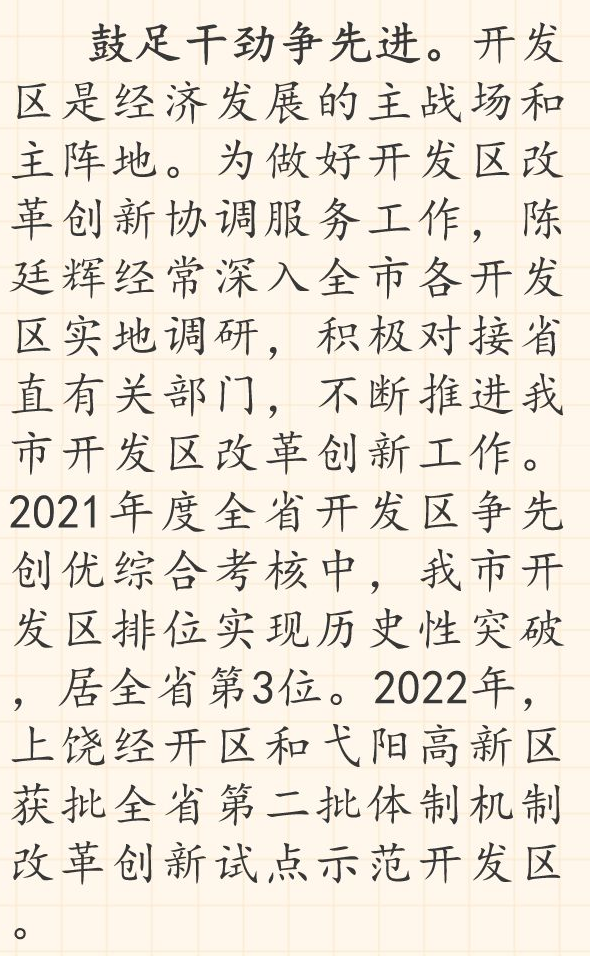 鼓足干劲争先进。开发
区是经济发展的主战场和
主阵地。为做好开发区改
革创新协调服务工作，陈
廷辉经常深入全市各开发
区实地调研，积极对接省
直有关部门，不断推进我
市开发区改革创新工作。
2021年度全省开发区争先
创优综合考核中，我市开
发区排位实现历史性突破
，居全省第3位。2022年，
上饶经开区和弋阳高新区
获批全省第二批体制机制
改革创新试点示范开发区
。